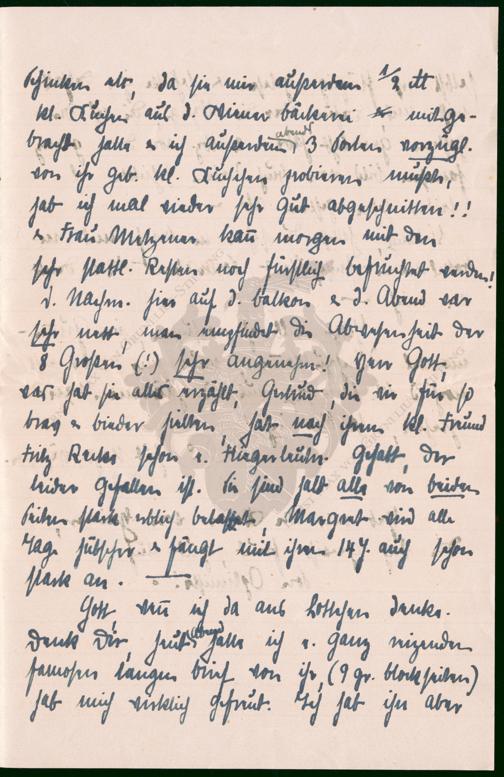 Schinken etc, da sie mir ausserdem 1/2 tt
kl. Kuchen aus d. Wiener bäckerei mitge-
bracht hatte & ich ausserdem abends 3 Sorten vorzügl.
von ihr geb. kl. Kuchen probieren musste,
hab ich mal wieder sehr gut abgeschnitten!!
& Frau Metzener kann morgen mit den
sehr stattl. Resten noch fürstlich befruchtet werden!
d. Nachm. hier auf d. balkon & d. Abend war
sehr nett, man empfindet die Abwesenheit der
8 Grossen (!) sehr angenehm! Herr Gott,
was hat sie alles erzählt, Gertrud, die wir für so
brav & bieder hielten, hat nach ihrem kl. Freund
Fritz Recke schon e. Fliegerleutn. gehabt, der
leider gefallen ist. Sie sind halt alle von beiden
Seiten stark erblich belastet. Margret wird alle
Tage hübscher & fängt mit ihren 14 J. auch schon
stark an.
Gott, wenn ich da ans Lottchen denke.
Denk Dir, heut Abend hatte ich e. ganz reizenden
famosen langen brief von ihr, (9 gr. blockseiten)
hab mich wirklich gefreut. Ich hab ihr aber